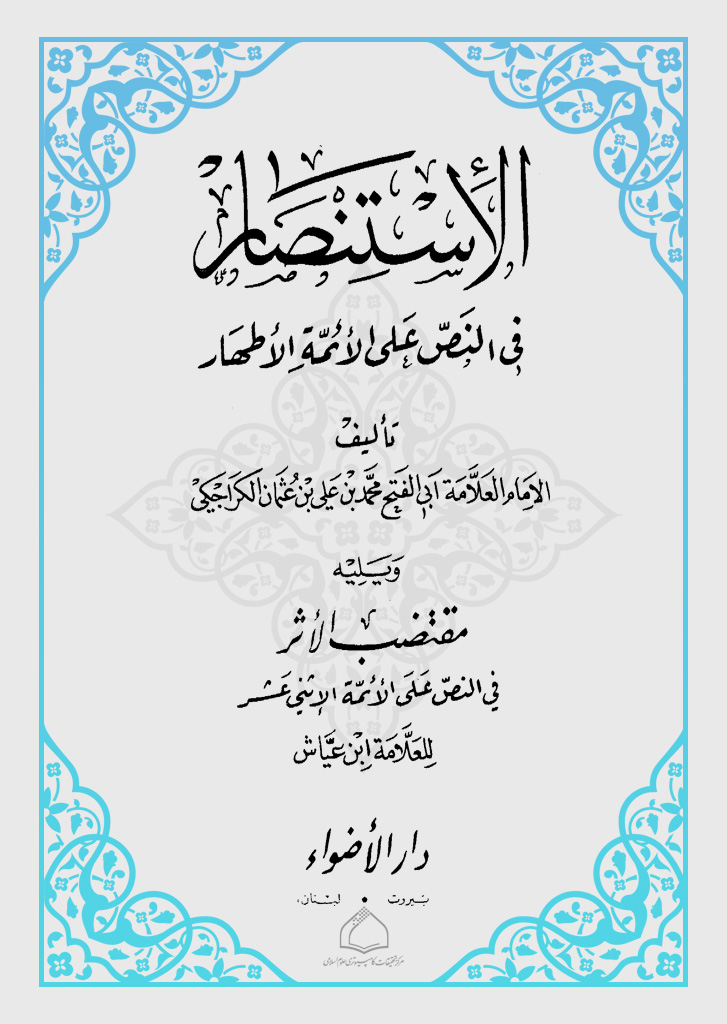 الإِسْتِنْصَار
في النَصّ عَلى الأئمّة الأطهَار
تأليف
الإمَام العَلاَّمَة أبي الفَتح محمَّد بْن عَلي بْن عُثمان الكَرَاجَكي
وَيَليْه
مقتضب الأثر
في النصّ عَلَى الأئمّة الإثني عَشر
لِلعَلاَّمَة ابْن عَيَّاش
دار الأضواء
بَيروت • لبْنان،
مرکز تحقیقات کامپیوتری علوم اسلامی